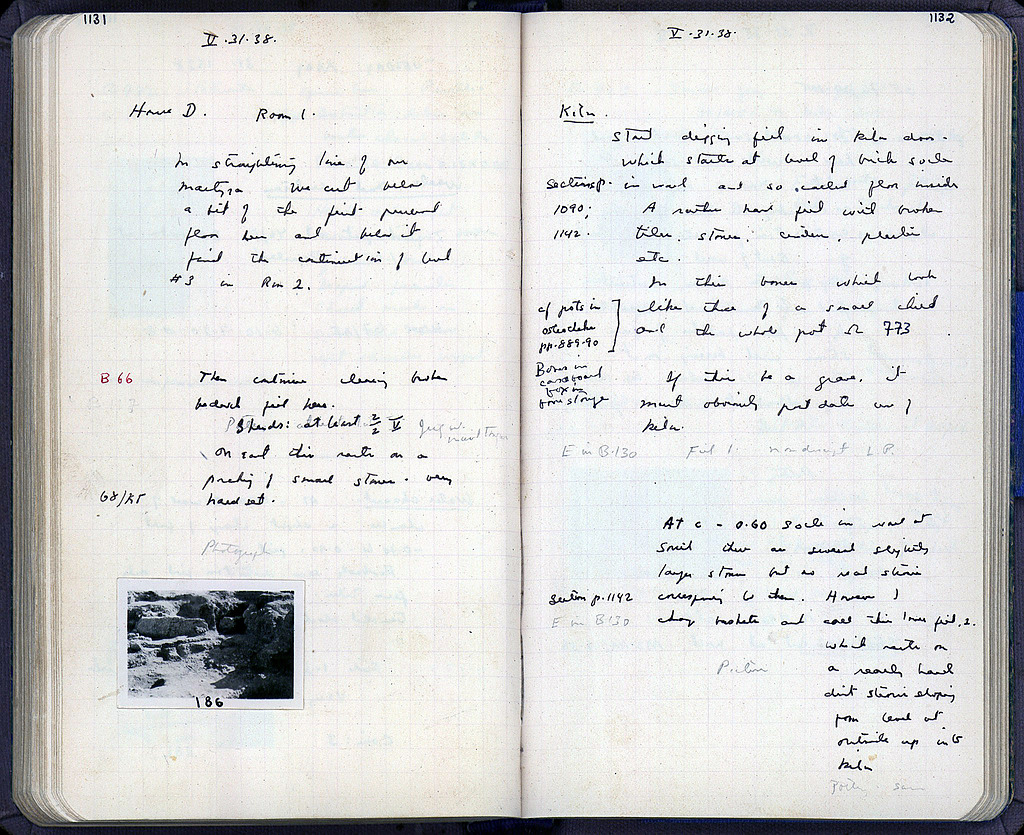 1131
V.31.38.
House D. Room 1.
In straightening line of our
martyra we cut below
a bit of the first preserved
floor here and below it
find the continuation of wall
#3 in Rm 2.
B 66
Then continue clearing broken
bedrock fill here.
Sherds: at least
on east this rests on a
packing of small stones. very
hard set.
G8/KT
Photograph
186
1132
V.31.38.
Kiln.
Start digging fill in kiln door.
which starts at level of brick socle
Sections p. in wall and so called floor inside
1090; A rather hard fill with broken
1142. tiles, stones, cinders, plaster
etc.
In this bones which look
cf pots in like those of a small child
and the whole pot Ω 773
pp. 889-90
Bones in
cardboard
box in
bone storage
If this be a grave, it
must obviously post date use of
kiln.
E in B.130 Fill 1. nondescript L.R.
At c - 0.60 socle in wall at
south there are several slightly
larger stones but no real stosis
Section p. 1142 corresponding to them. However I
E in B.130 change baskets and call this lower fill, 2.
which rests on
a really hard
dirt stosis sloping
from level at
outside up into
kiln